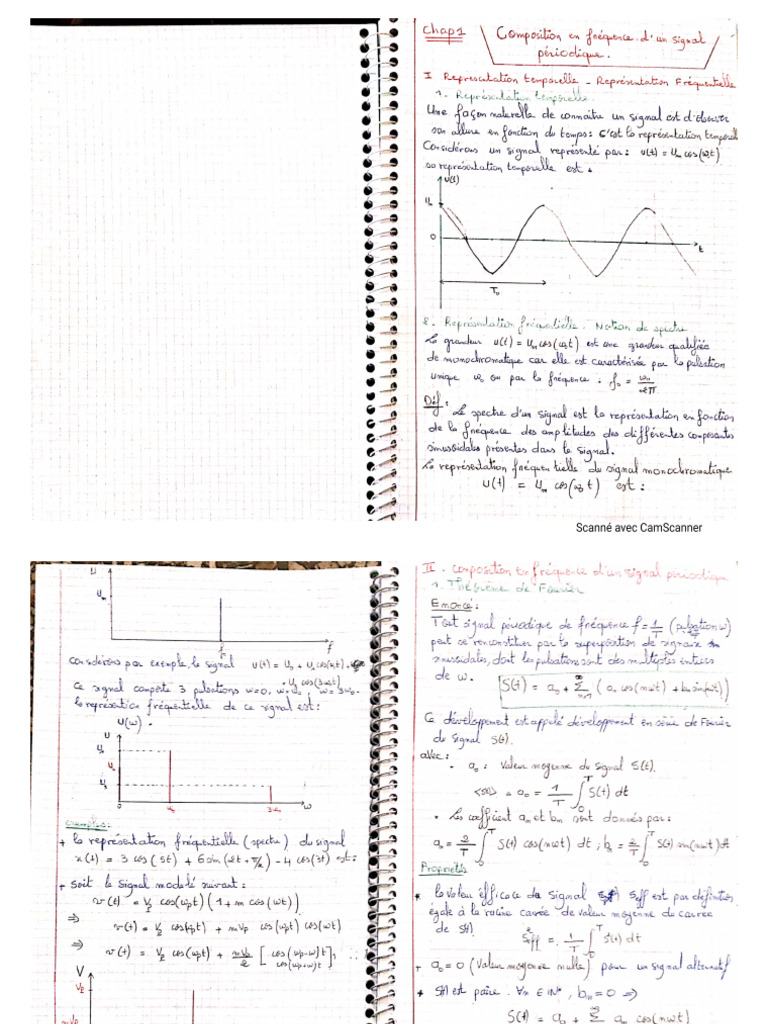 Chap1
Composition en fréquence d'un signal
périodique.
I Representation temporelle - Représentation Fréquentielle
1. Représentation temporelle.
Une façon naturelle de connaitre un signal est d'observer
son allure en fonction du temps: C'est la représentation temporell
Considérons un signal représenté par: u(t) = Um cos(ω0t)
sa représentation temporelle est :
u(t)
Um
0
t
T0
2. Représentation fréquentielle. Notion de spectre
La grandeur u(t) = Um cos(ω0t) est une grandeur qualifiée
de monochromatique car elle est caractérisée par la pulsation
unique ω0 ou par la fréquence : f0 = ω0/2π
Déf : Le spectre d'un signal est la représentation en fonction
de la fréquence des amplitudes des différentes composantes
sinusoidales présentes dans le signal.
La représentation fréquentielle du signal monochromatique
u(t) = Um cos(ω0t) est :
Scanné avec CamScanner
U
Um
f
Considérons par exemple le signal u(t) = U0 + Um cos(ω0t) +
U3 cos(3ω0t)
Ce signal comporte 3 pulsations ω=0, ω=ω0, ω=3ω0.
la représentation fréquentielle de ce signal est:
U(ω).
U
U0
U3
0
ω0
3ω0
ω
exemples:
+ la représentation fréquentielle (spectre) du signal
x(t) = 3 cos(5t) + 6 sin(2t + π/2) - 4 cos(3t) est:
+ soit le signal modulé suivant:
v(t) = Vp cos(ωpt) (1 + m cos(ωt))
⇒ v(t) = Vp cos(ωpt) + mVp cos(ωpt) cos(ωt)
⇒ v(t) = Vp cos(ωpt) + mVp/2 [cos(ωp-ω)t
cos(ωp+ω)t]
V
Vp
mVp
II - Composition en fréquence d'un signal périodique
1. Théorème de Fourier
Enoncé:
Tout signal périodique de fréquence f = 1/T (pulsation ω)
peut se reconstituer par la superposition de signaux
sinusoidales, dont les pulsations sont des multiples entiers
de ω. S(t) = a0 + ∞Σn=1 (an cos(nωt) + bn sin(nωt))
Ce développement est appelé développement en série de Fourier
du signal S(t).
avec:
• a0 : Valeur moyenne du signal S(t).
<S(t)> = a0 = 1/T ∫0T S(t) dt
• Les coefficient an et bn sont donnés par:
an = 2/T ∫0T S(t) cos(nωt) dt ; bn = 2/T ∫0T S(t) sin(nωt) dt
Propriétés
* la valeur efficace du signal Seff est par définition
égale à la racine carrée de valeur moyenne du carrée
de S(t).
S²eff = 1/T ∫0T S²(t) dt
+ a0 = 0 (Valeur moyenne nulle) pour un signal alternatif
* S(t) est paire. ∀n ∈ IN*, bn = 0 ⇒
S(t) = a0 + ∞Σ an cos(nωt)